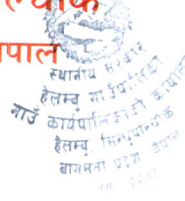 ल्चोक
नेपाल
स्थानीय सरकार
हेलम्बु गाउँपालिका
गाउँ कार्यपालिकाको कार्यालय
हेलम्बु, सिन्धुपाल्चोक
बागमती प्रदेश नेपाल